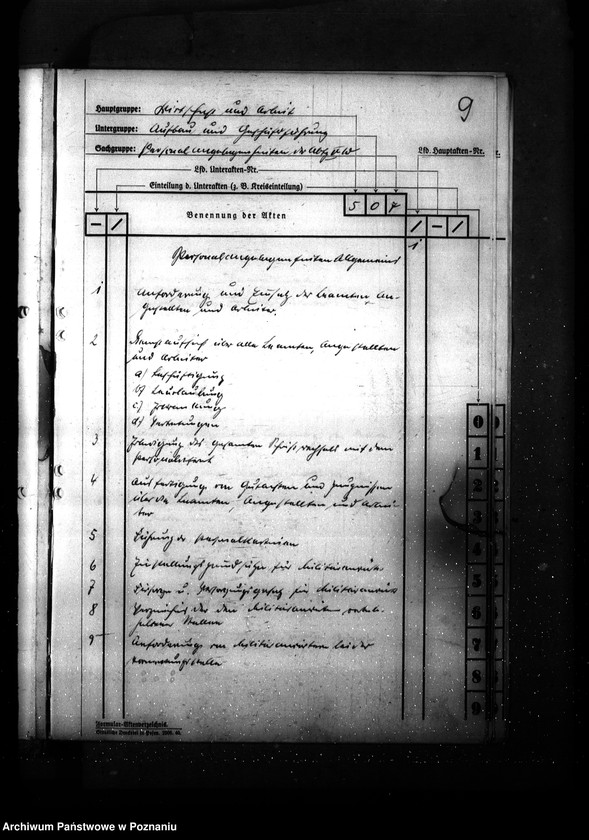 9
Hauptgruppe: Wirtschaft und Arbeit
Untergruppe: Aufbau und Geschäftsführung
Sachgruppe: Personalangelegenheiten der Abtg
Lfd. Hauptakten-Nr.
Lfd. Unterakten-Nr.
Einteilung d. Unterakten (z. B. Kreiseinteilung)
5 0 7
Benennung der Akten
— / / — /
1
Personalangelegenheiten Allgemeines
1 Anforderung und Einsatz der Beamten, An-
gestellten und Arbeiter.
2 Dienstaufsicht über alle Beamten, Angestellten
und Arbeiter
a) Beschäftigung
b) Beurlaubung
c) Erkrankung
d) Vertretungen
3 Erledigung des gesamten Schriftwechsels mit dem
Personalreferat
4 Ausfertigung von Gutachten und Zeugnissen
über die Beamten, Angestellten und Arbei-
ter
5 Führung der Personalkarteien
6 für Militäranwärter
7 für Militäranwärter
8 Verzeichnis der den Militäranwärtern vorbe-
haltenen Stellen
9 Anforderung von Militäranwärtern bei der
Vormerkungsstelle
0
1
2
3
4
5
6
7
8
9
Formular-Aktenverzeichnis.
Archiwum Państwowe w Poznaniu